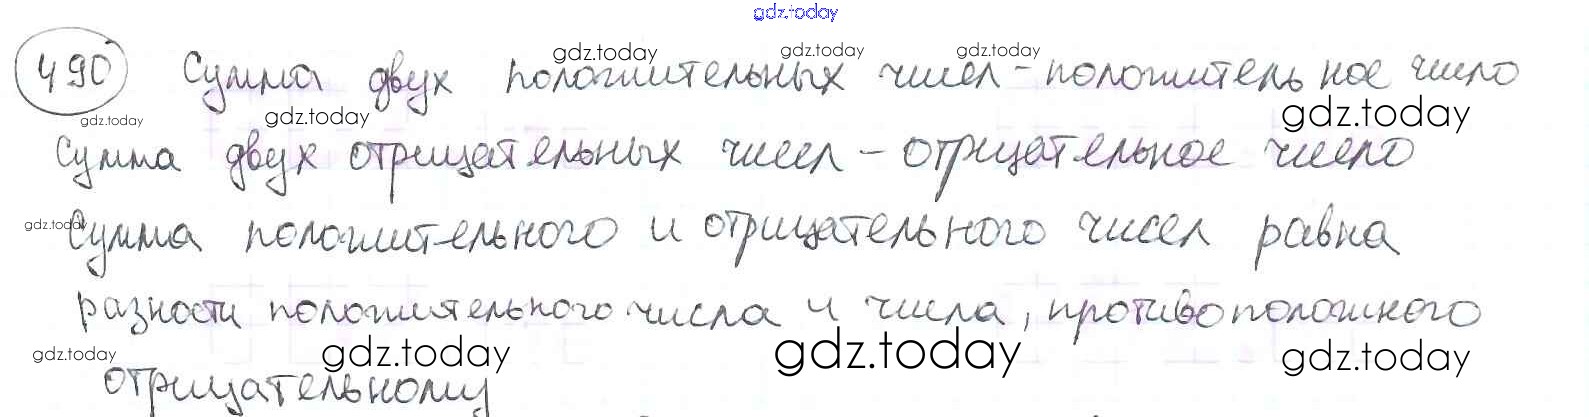 gdz.today
490 Сумма двух положительных чисел - положительное число
gdz.today gdz.today gdz.today
gdz.today gdz.today gdz.today
Сумма двух отрицательных чисел - отрицательное число
gdz.today
Сумма положительного и отрицательного чисел равна
разности положительного числа и числа, противоположного
gdz.today gdz.today gdz.today gdz.today
отрицательному